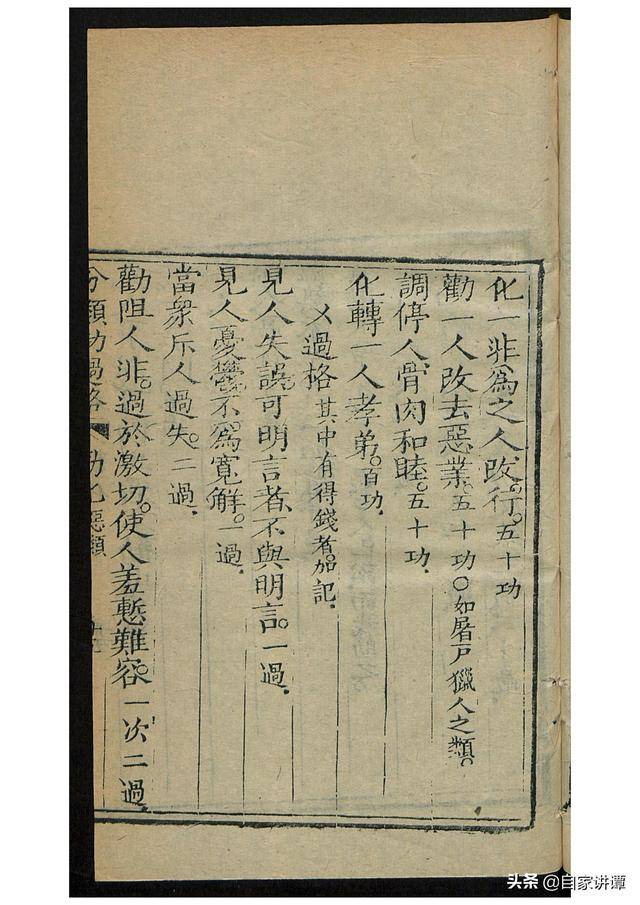 化一非為之人改行。五十功
勸一人改去惡業。五十功〇如屠戸獵人之類。
調停人骨肉和睦。五十功。
化轉一人孝弟。百功。
乂過格其中有得錢者。加記。
見人失誤可明言者不與明言。一過。
見人憂鬱不為寬解。一過。
當衆斥人過失。二過。
勸阻人非。過於激切。使人羞慙難容。一次二過。
分類功過格 勸化惡類
头条 @自家讲谭